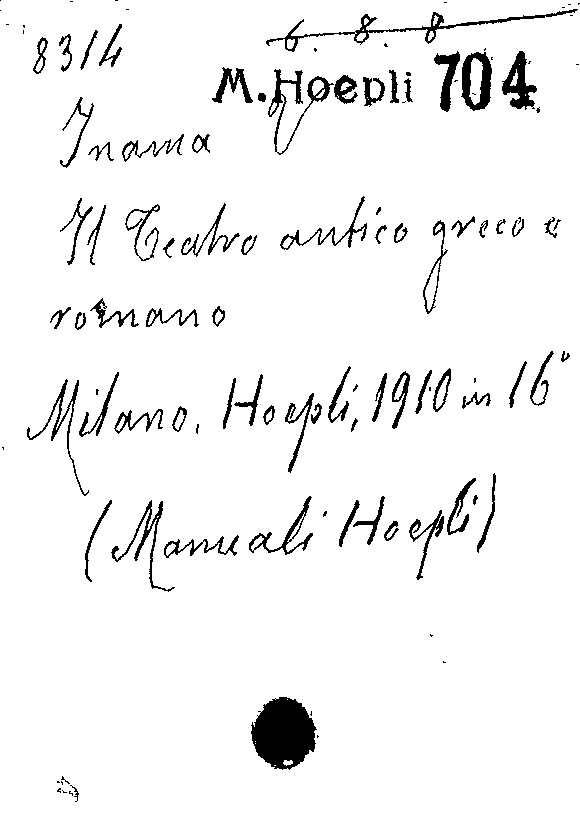 6. 8. 8
8314
M. Hoepli 704
Inama V
Il Teatro antico greco e
romano
Milano, Hoepli, 1910 in 16°
(Manuali Hoepli)